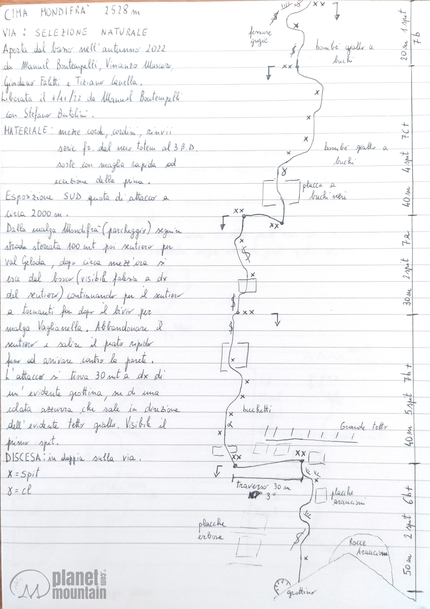 CIMA MONDIFRÀ 2528 m
VIA: SELEZIONE NATURALE
Aperta dal basso nell'autunno 2022
da Manuel Bontempelli, Vincenzo Mascaro,
Giordano Faletti e Tiziano
Liberata il 4/11/22 da Manuel Bontempelli
con Stefano Bertolini.
MATERIALE: mezze corde, cordini, rinvii
serie fr. dal nero totem al 3 B.D.
soste con maglia rapida ad
eccezione della prima.
Esposizione SUD quota di attacco a
circa 2000 m.
Dalla malga Mondifrà (parcheggio) seguire
strada sterrata 100 mt poi sentiero per
val Gelada, dopo circa mezz'ora si
esce dal bosco (visibile falesia a dx
del sentiero) continuando per il sentiero
a tornanti fin dopo il bivio per
malga Vaglianella. Abbandonare il
sentiero e salire il prato ripido
fino ad arrivare contro la parete.
L'attacco si trova 30 mt a dx di
un'evidente grottina, su di una
colata oscura che sale in direzione
dell'evidente tetto giallo. Visibile il
primo spit.
DISCESA: in doppia sulla via.
X = spit
γ = cl
fessure
grigie
bombè giallo a
buchi
20 m 1 spit
7b
bombè giallo a
buchi
40 m 4 spit 7c+
placca a
buchi neri
30 m 2 spit 7a
40 m 5 spit 7b+
buchetti
Grande tetto
traverso 30 m
3°
placche
arancioni
placche
erbose
50 m 2 spit 6b+
Rocce
Arancioni
grottino
planet
mountain
.com